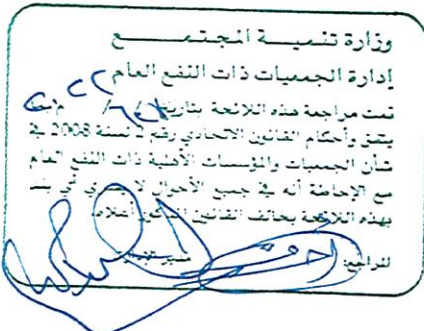 وزارة تنميـــة المجتمــــــع
إدارة الجمعيات ذات النفع العام
تمت مراجعة هذه اللائحة بتاريخ / / م بما
يتفق وأحكام القانون الاتحادي رقم 2 لسنة 2008 في
شأن الجمعيات والمؤسسات الأهلية ذات النفع العام
مع الإحاطة أنه في جميع الأحوال لا يسري أي بند
بهذه اللائحة يخالف القانون المذكور أعلاه
المراجع: مدير الإدارة